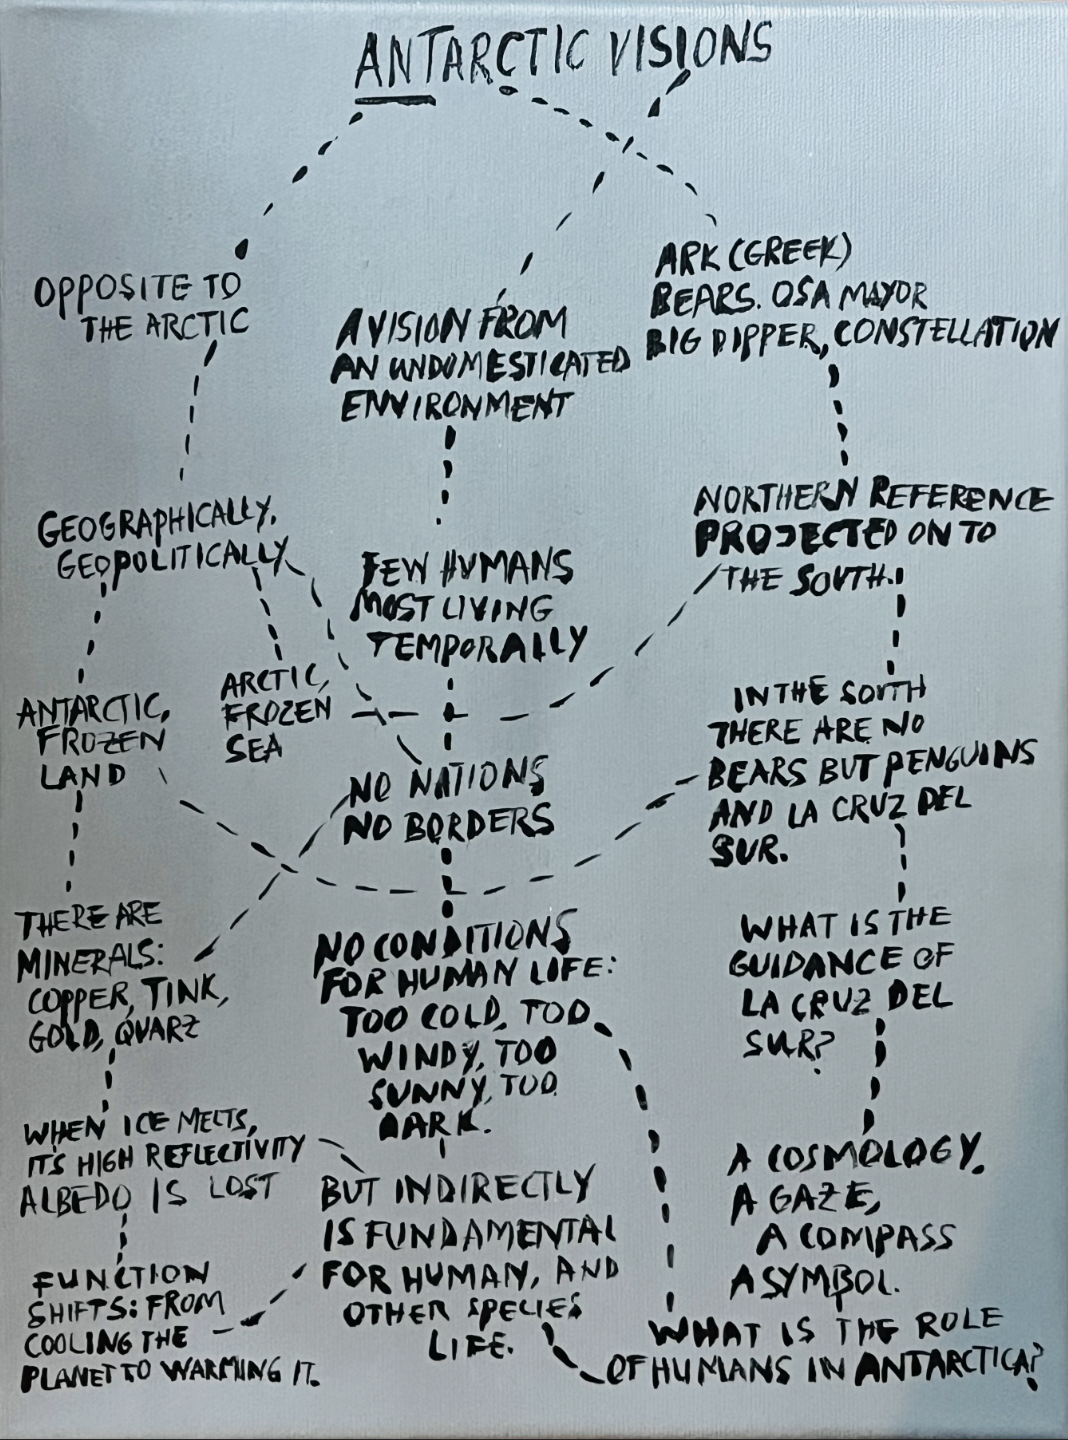 ANTARCTIC VISIONS
OPPOSITE TO
THE ARCTIC
A VISION FROM
AN UNDOMESTICATED
ENVIRONMENT
ARK (GREEK)
BEARS. OSA MAYOR
BIG DIPPER, CONSTELLATION
GEOGRAPHICALLY,
GEOPOLITICALLY
FEW HUMANS
MOST LIVING
TEMPORALLY
NORTHERN REFERENCE
PROJECTED ON TO
THE SOUTH.
ANTARCTIC,
FROZEN
LAND
ARCTIC,
FROZEN
SEA
NO NATIONS
NO BORDERS
IN THE SOUTH
THERE ARE NO
BEARS BUT PENGUINS
AND LA CRUZ DEL
SUR.
THERE ARE
MINERALS:
COPPER, TINK,
GOLD, QUARZ
NO CONDITIONS
FOR HUMAN LIFE:
TOO COLD, TOO
WINDY, TOO
SUNNY, TOO
DARK.
WHAT IS THE
GUIDANCE OF
LA CRUZ DEL
SUR?
WHEN ICE MELTS,
IT'S HIGH REFLECTIVITY
ALBEDO IS LOST
BUT INDIRECTLY
IS FUNDAMENTAL
FOR HUMAN, AND
OTHER SPECIES
LIFE.
A COSMOLOGY.
A GAZE,
A COMPASS
A SYMBOL.
FUNCTION
SHIFTS: FROM
COOLING THE
PLANET TO WARMING IT.
WHAT IS THE ROLE
OF HUMANS IN ANTARCTICA?